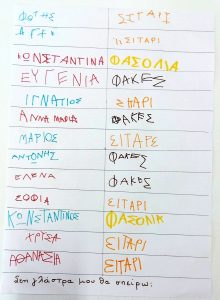 ΦΩΤΗΣ ΣΙΤΑΡΙ
ΑΓΓΗ ΣΙΤΑΡΙ
ΚΩΝΣΤΑΝΤΙΝΑ ΦΑΣΟΛΙΑ
ΕΥΓΕΝΙΑ ΦΑΚΕΣ
ΙΓΝΑΤΙΟΣ ΣΗΑΡΙ
ΑΝΝΑ ΜΑΡΙΑ ΦΑΚΕΣ
ΜΑΡΙΟΣ ΣΙΤΑΡΕ
ΑΝΤΩΝΗΣ ΦΑΚΕΣ
ΕΛΕΝΑ ΦΑΚΕΣ
ΣΟΦΙΑ ΣΙΤΑΡΙ
ΚΩΝΣΤΑΝΤΙΝΟΣ ΦΑΣΟΛΙΑ
ΧΡΥΣΑ ΣΙΤΑΡΙ
ΑΘΑΝΑΣΙΑ ΣΙΤΑΡΙ
Στη γλάστρα μου θα σπείρω: